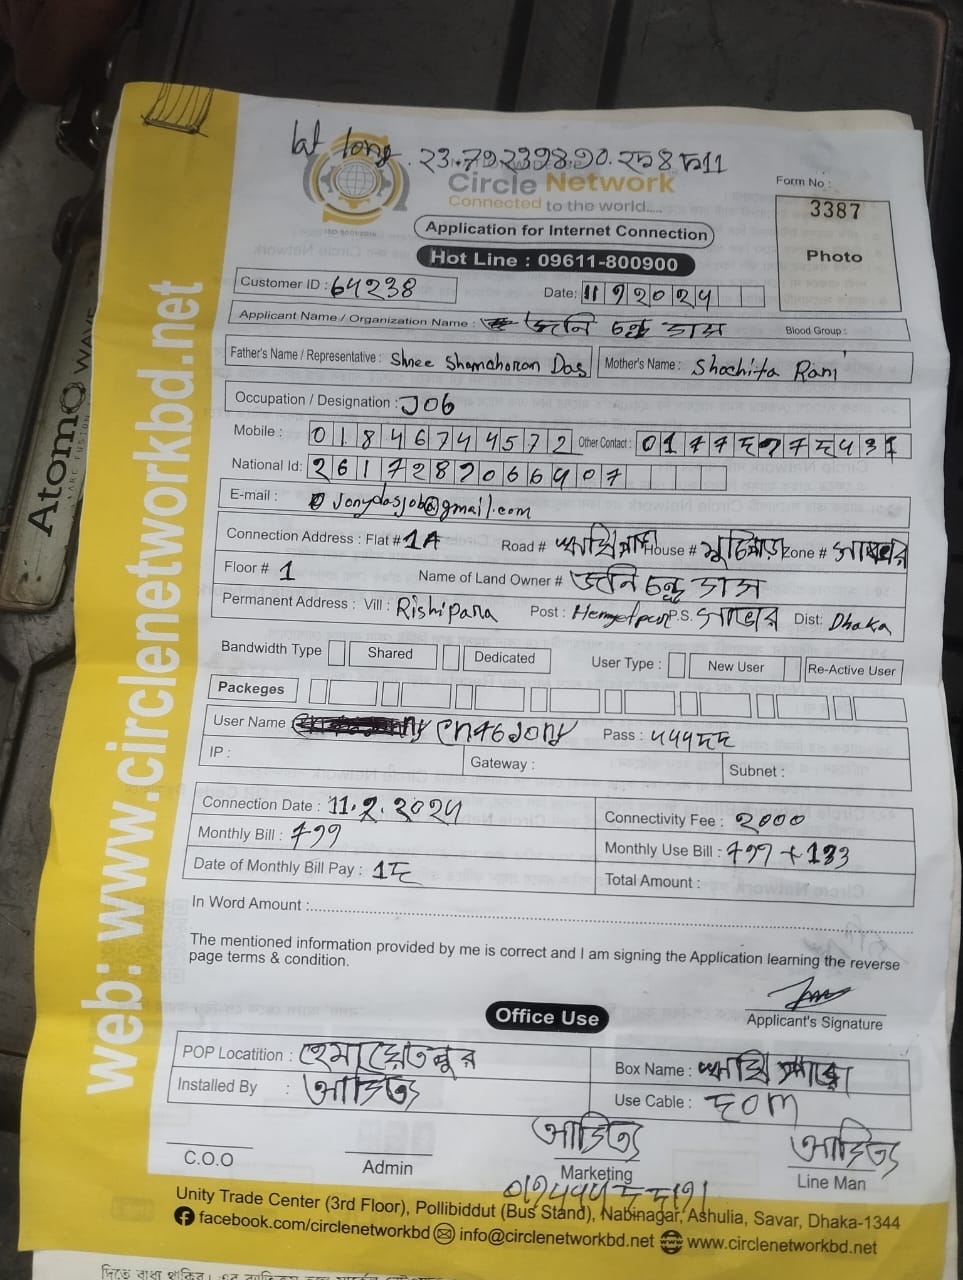 lat long. 23.7923984 90.258511
Circle Network
Connected to the world.....
ISO 9001:2015
Form No :
3387
Photo
Application for Internet Connection
Hot Line : 09611-800900
Customer ID : 64238
Date: 11 9 2024
Applicant Name / Organization Name : জনি চন্দ্র দাস
Blood Group :
Father's Name / Representative : Shree Shamchoron Das
Mother's Name : Shochita Rani
Occupation / Designation : JOB
Mobile : 01846744572
Other Contact :
National Id:
E-mail : Jonydasjob@gmail.com
Connection Address : Flat # 1A Road # ঋষিপাড়া House # Zone # সাভার
Floor # 1 Name of Land Owner # জনি চন্দ্র দাস
Permanent Address : Vill : Rishipara Post : Hemyetpur P.S. সাভার Dist: Dhaka
Bandwidth Type Shared Dedicated User Type : New User Re-Active User
Packeges
User Name Pass : ৭৭৭৮৮
IP : Gateway : Subnet :
Connection Date : 11.9.2024
Connectivity Fee : 2000
Monthly Bill : 799
Monthly Use Bill : 799 + 133
Date of Monthly Bill Pay :
Total Amount :
In Word Amount :
The mentioned information provided by me is correct and I am signing the Application learning the reverse
page terms & condition.
Applicant's Signature
Office Use
POP Locatition : হেমায়েতপুর
Box Name : ঋষি পাড়া
Installed By : আদিত্য
Use Cable : ৮0m
C.O.O
Admin
আদিত্য
Marketing
আদিত্য
Line Man
Unity Trade Center (3rd Floor), Pollibiddut (Bus Stand), Nabinagar, Ashulia, Savar, Dhaka-1344
facebook.com/circlenetworkbd info@circlenetworkbd.net www.circlenetworkbd.net
web: www.circlenetworkbd.net
Atomo WAVE